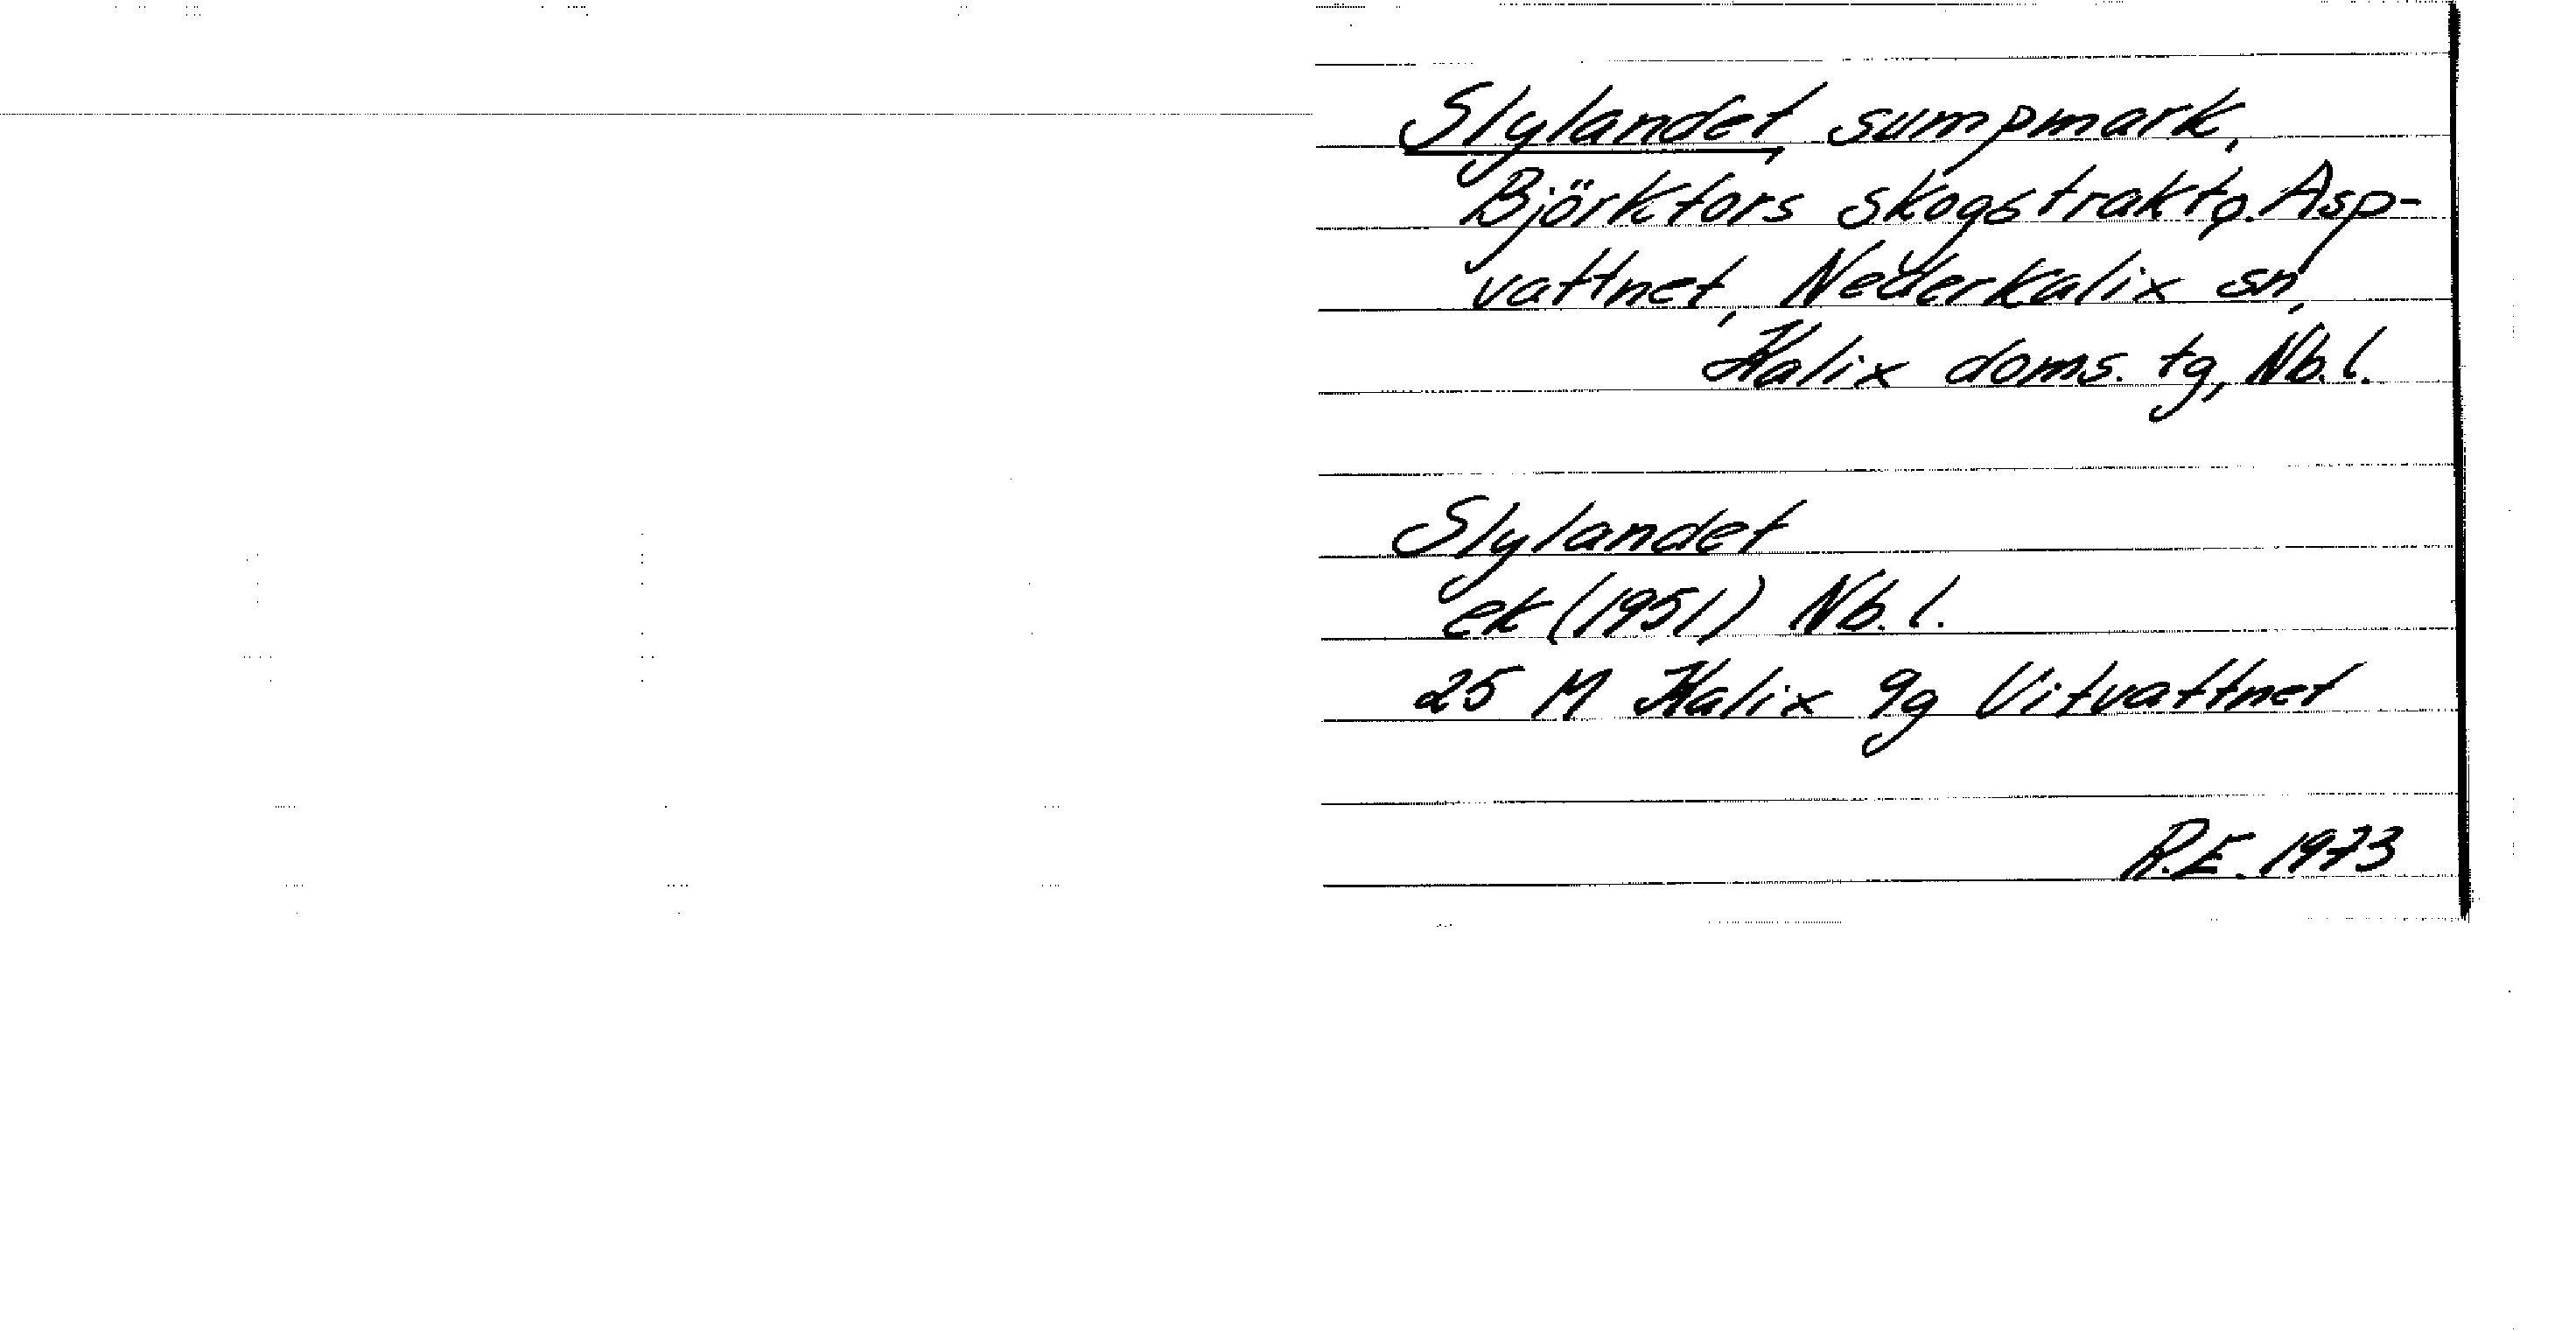 Slylandet, sumpmark,
Björkfors skogstrakt o. Asp-
vattnet, Nederkalix sn,
Kalix doms. tg, Nb. l.
Slylandet
ek (1951) Nb. l.
25 M Kalix 9g Vitvattnet
R.E. 1973